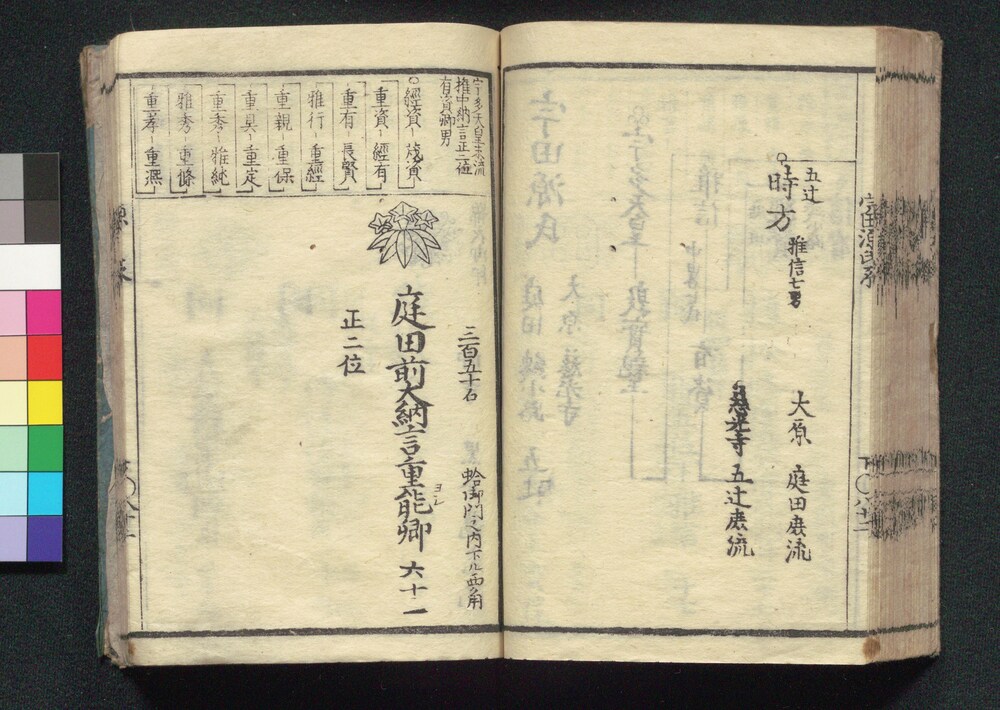 五辻
時方
雅信七男
大原 庭田庶流
慈光寺 五辻庶流
宇多天皇末流
権中納言正二位
有資卿男
經資 茂資
重資 經有
重有 長賢
雅行 重經
重親 重保
重具 重定
重秀 雅純
雅秀 重條
重孝 重凞
三百五十石
蛤御門之内下ル西角
庭田前大納言重能卿 六十一
正二位